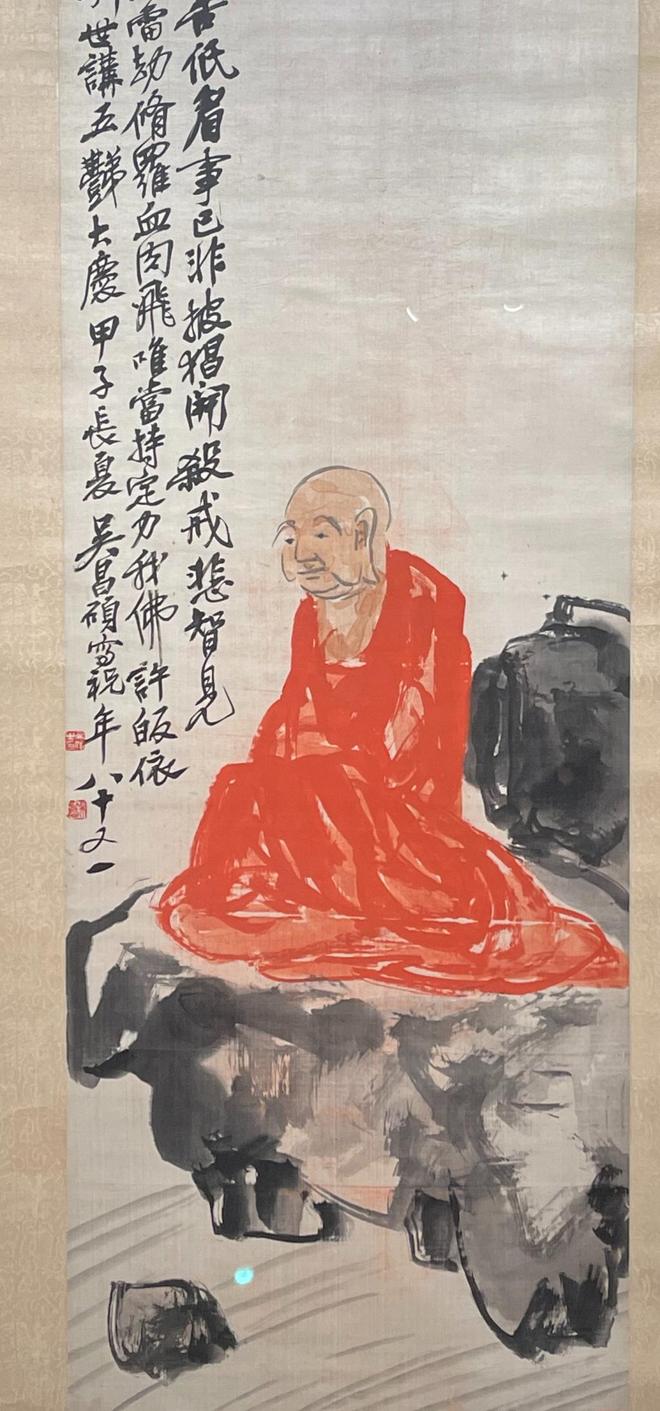 低眉事已非披猖開殺戒悲智見
雷劫脩羅血肉飛唯當持定力我佛許皈依
世講五豑大慶甲子長夏吳昌碩寫祝年八十又一